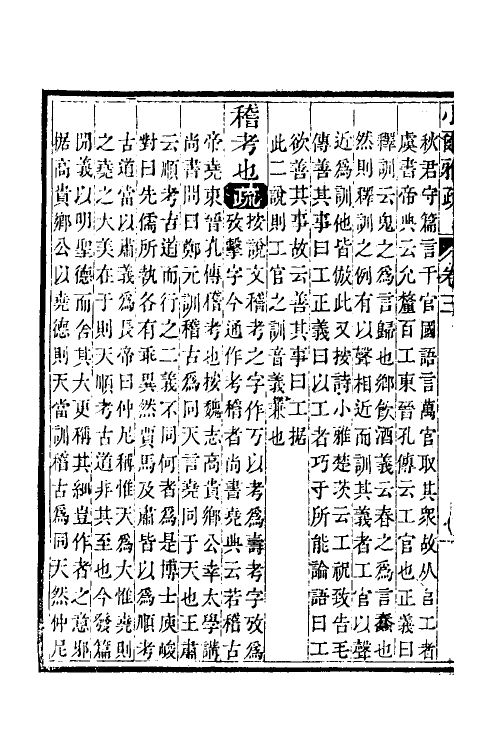 小爾雅疏 卷三
秋君守篇言千官國語言萬官取其衆故从𠂤工者
虞書帝典云允釐百工東晉孔傳云工官也正義曰
釋訓云鬼之爲言歸也鄉飲酒義云春之爲言蠢也
然則釋訓之例有以聲相近而訓其義者工官以聲
近爲訓他皆倣此又按詩小雅楚茨云工祝致告毛
傳善其事曰工正義曰以工者巧于所能論語曰工
欲善其事故云善其事曰工据
此二說則工官之訓音義兼也
稽考也疏按說文稽考之字作丂以考爲壽考字攷爲
攷擊字今通作考稽者尚書堯典云若稽古
帝堯東晉孔傳稽考也按魏志高貴鄉公幸太學講
尚書問曰鄭元訓稽古爲同天言堯同于天也王肅
云順考古道而行之二義不同何者爲是博士庾峻
對曰先儒所執各有乖異然賈馬及肅皆以爲順考
古道當以肅義爲長帝曰仲尼稱惟天爲大惟堯則
之堯之大美在于則天順考古道非其至也今發篇
開義以明聖德而舍其大更稱其細豈作者之意邪
据高貴鄉公以堯德則天當訓稽古爲同天然仲尼